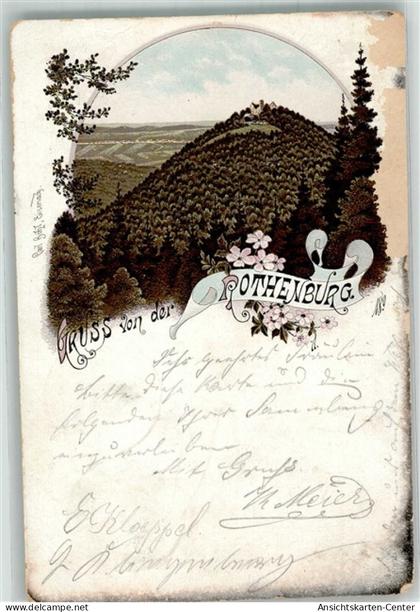 Gruss von der
Rothenburg.
Sehr geehrtes Fräulein
bitte diese Karte und die
folgenden Ihrer Sammlung
einzuverleiben
Mit Gruss.
K Meier
E Kloeppel
www.ansichtskarten-center.de
Ansichtskarten-Center